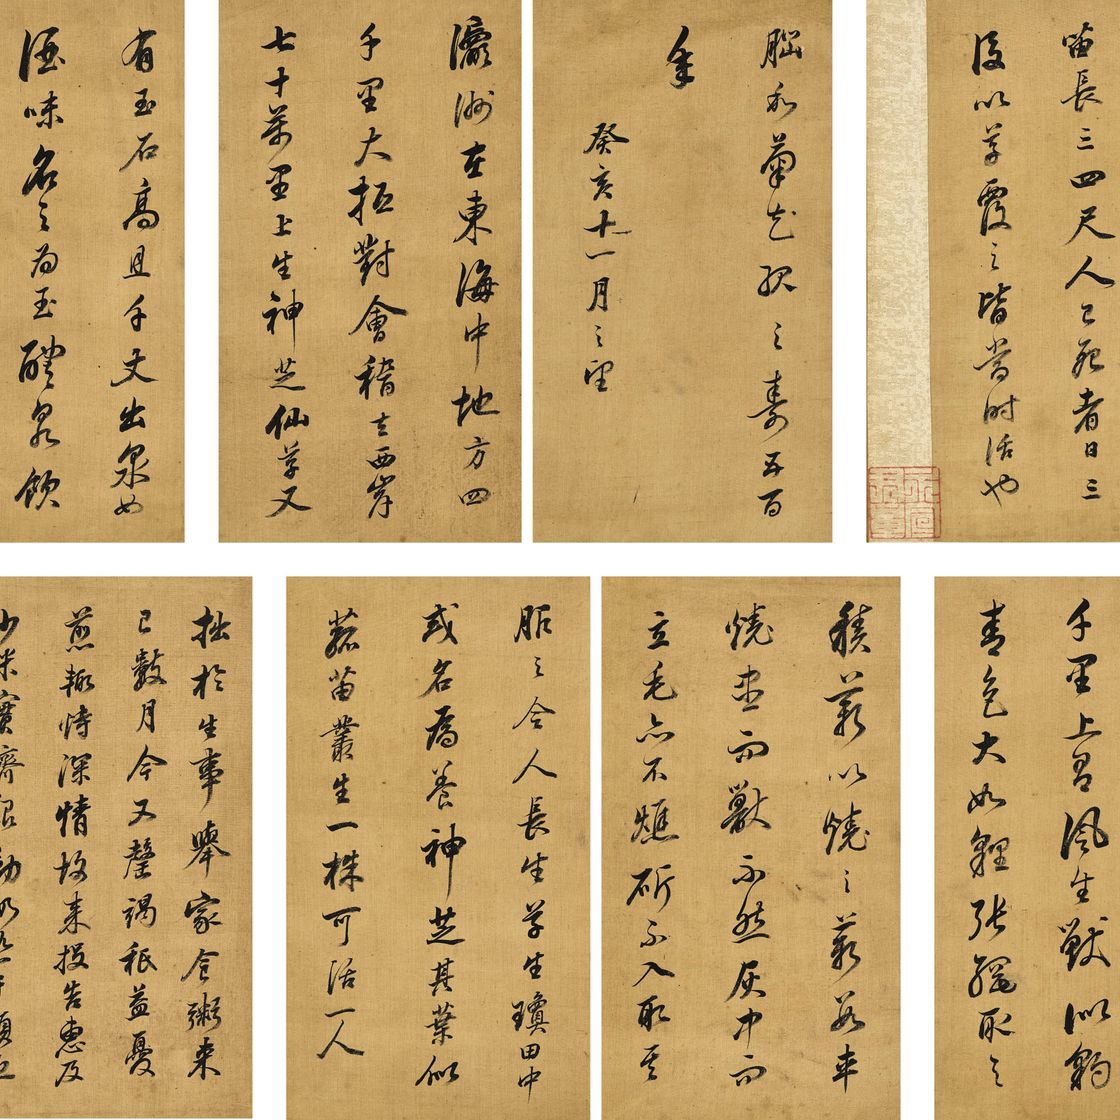 苗長三四尺人已死者日三
後以草覆之皆當時活也
腦和菊花服之壽五百
年
癸亥十一月之望
瀛洲在東海中地方四
千里大抵對會稽去西岸
七十萬里上生神芝仙草又
有玉石高且千丈出泉如
酒味名之為玉醴泉飲
千里上有風生獸似豹
青色大如貍張網取之
積薪以燒之薪數車
燒盡而獸不然灰中而
立毛亦不燋斫不入取其
服之令人長生草生瓊田中
或名為養神芝其葉似
菰苗叢生一株可活一人
拙於生事舉家食粥來
已數月今又罄竭秖益憂
煎輒恃深情故來投告惠及
少米實濟艱勤仍恕干煩也